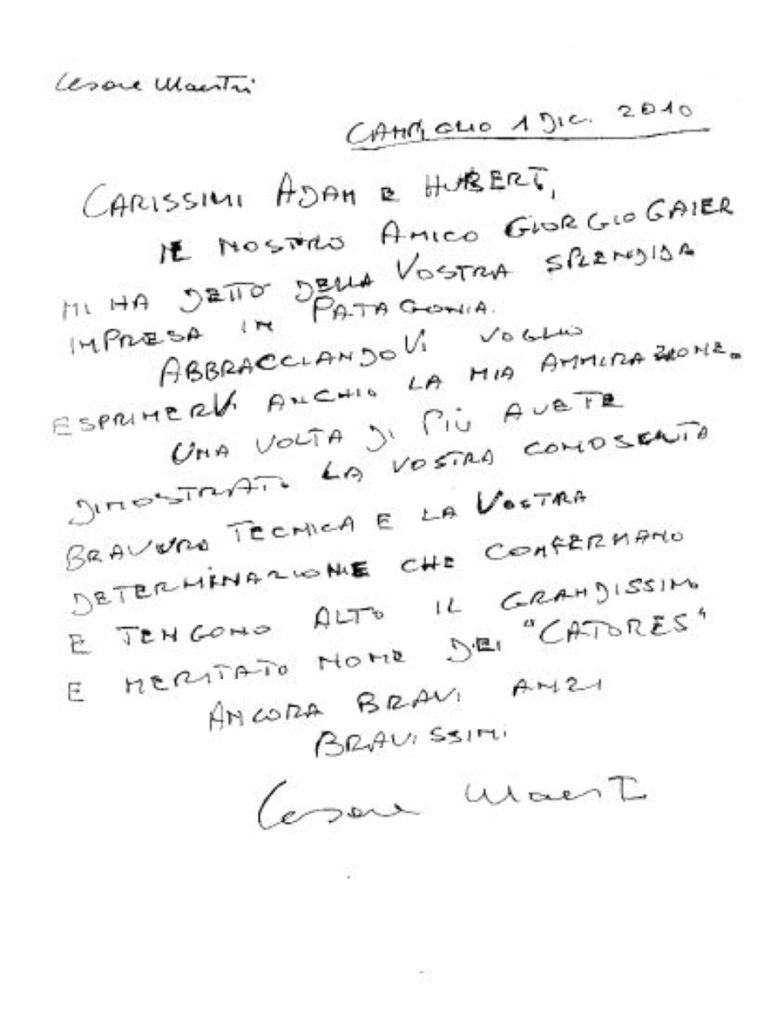 Cesare Maestri
CAMPIGLIO 1 DIC. 2010
CARISSIMI ADAM E HUBERT,
IL NOSTRO AMICO GIORGIO GAIER
MI HA DETTO DELLA VOSTRA SPLENDIDA
IMPRESA IN PATAGONIA.
ABBRACCIANDOVI VOGLIO
ESPRIMERVI ANCHIO LA MIA AMMIRAZIONE.
UNA VOLTA DI PIÙ AVETE
DIMOSTRATO LA VOSTRA CONOSCENTA
BRAVURA TECNICA E LA VOSTRA
DETERMINAZIONE CHE CONFERMANO
E TENGONO ALTO IL GRANDISSIMO
E MERITATO NOME DEI "CATORES"
ANCORA BRAVI ANZI
BRAVISSIMI
Cesare Maestri